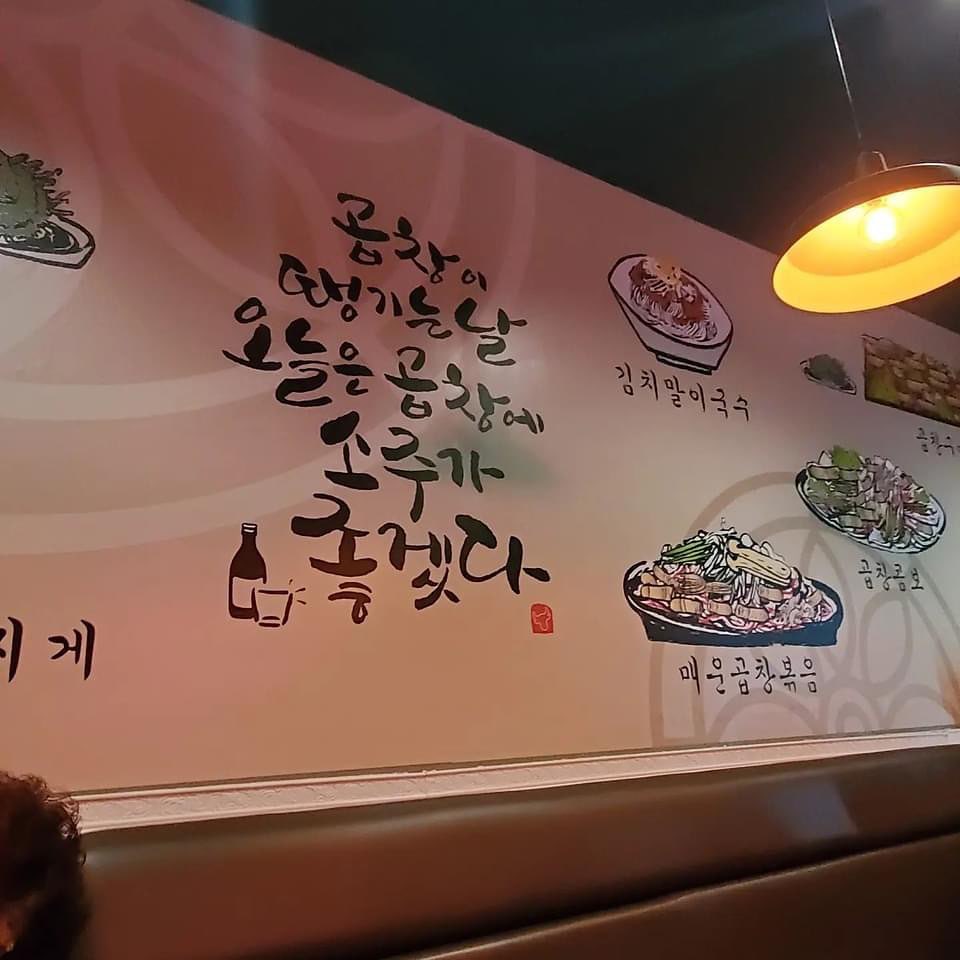 곱창이
땡기는 날
오늘은 곱창에
소주가
좋겠다
김치말이국수
곱창콤보
매운곱창볶음